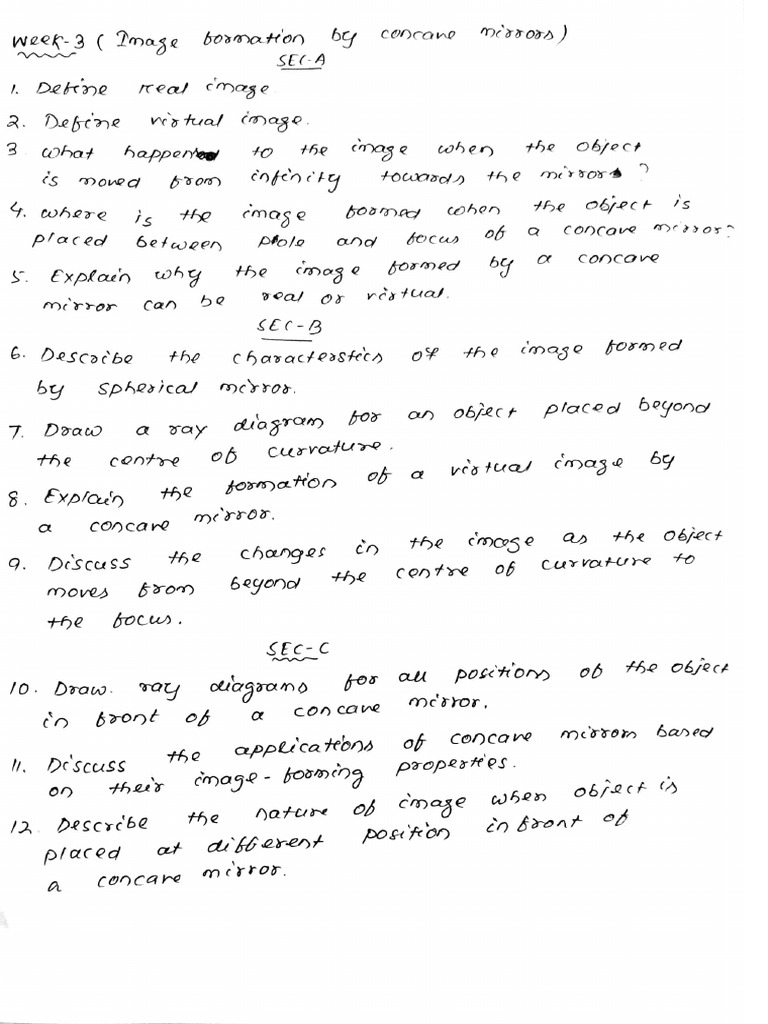 Week-3 (Image formation by concave mirrors)
SEC-A
1. Define real image
2. Define virtual image.
3 what happen to the image when the object
is moved from infinity towards the mirror?
4. where is the image formed when the object is
placed between pole and focus of a concave mirror?
5. Explain why the image formed by a concave
mirror can be real or virtual.
SEC-B
6. Describe the characterstics of the image formed
by spherical mirror.
7. Draw a ray diagram for an object placed beyond
the centre of curvature.
8. Explain the formation of a virtual image by
a concave mirror.
9. Discuss the changes in the image as the object
moves from beyond the centre of curvature to
the focus.
SEC-C
10. Draw. ray diagrams for all positions of the object
in front of a concave mirror.
11. Discuss the applications of concave mirrors based
on their image-forming properties.
12. Describe the nature of image when object is
placed at different position in front of
a concave mirror.